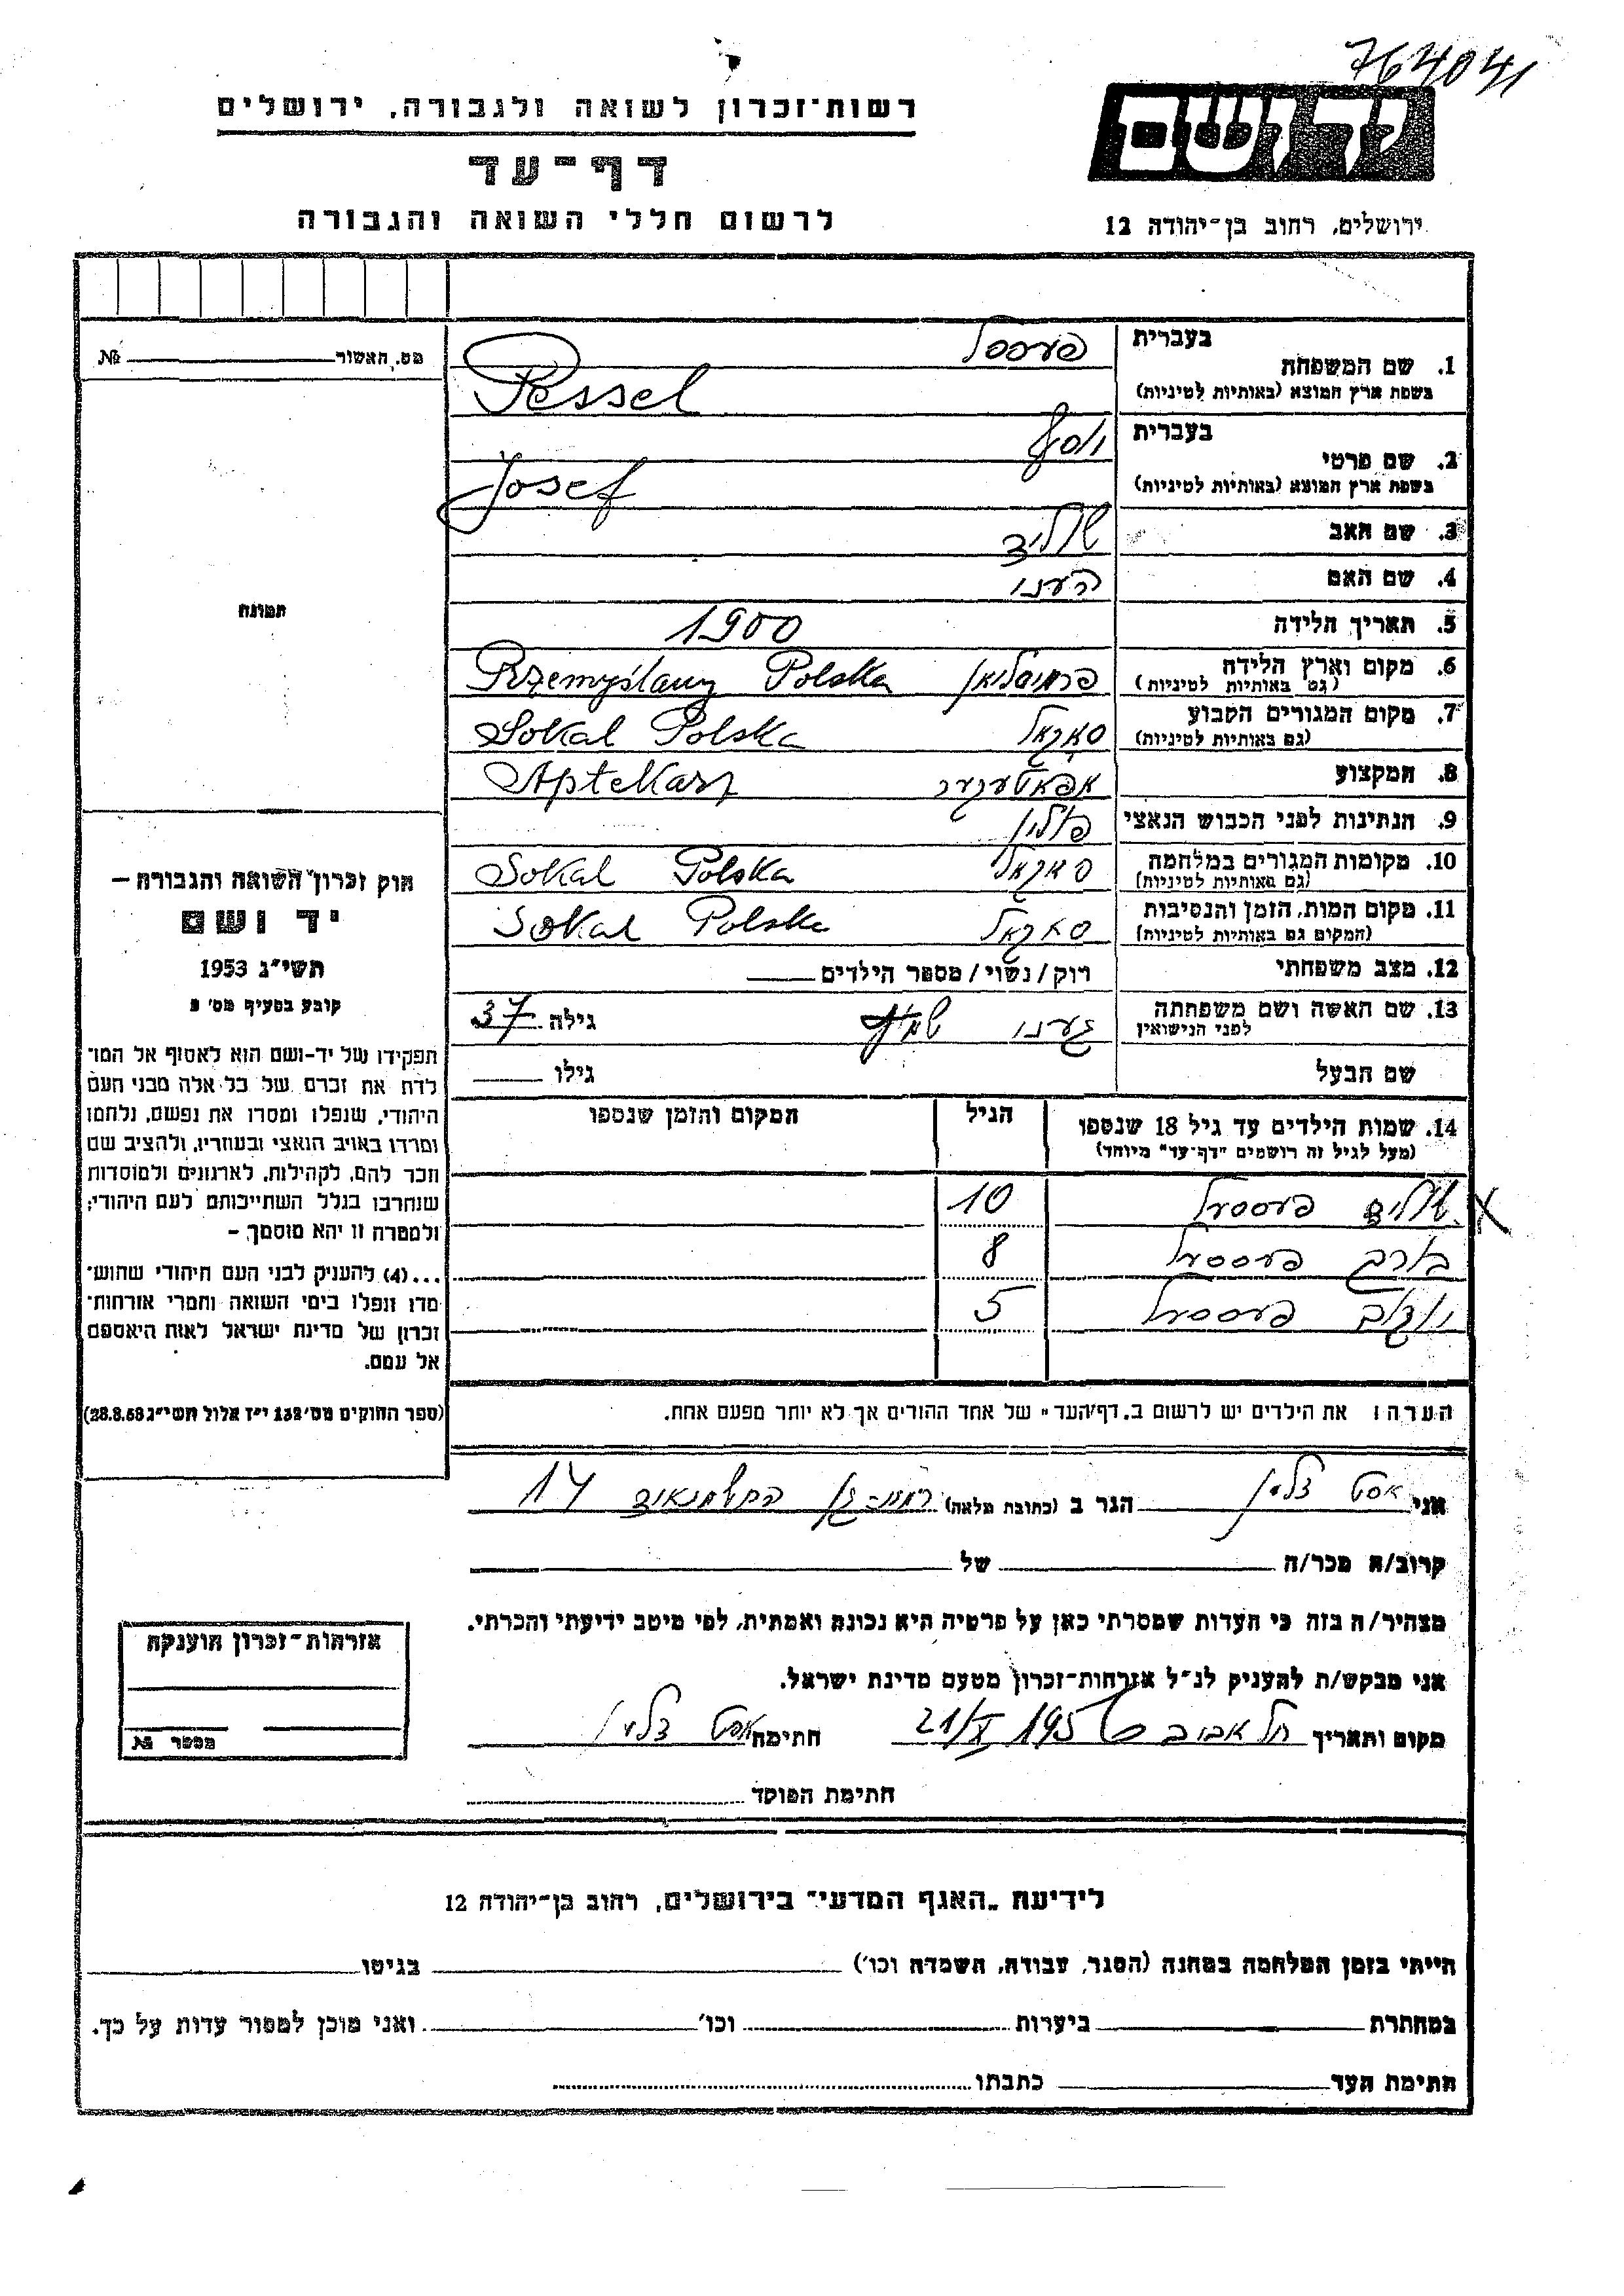 764041
רשות־זכרון לשואה ולגבורה, ירושלים
דף־עד
לרשום חללי השואה והגבורה
ירושלים, רחוב בן־יהודה 12
מס. האשור № 
תמונה
1. שם המשפחה בעברית פעססל
בשפת ארץ המוצא (באותיות לטיניות) Pessel
2. שם פרטי בעברית יוסף
בשפת ארץ המוצא (באותיות לטיניות) Josef
3. שם האב
4. שם האם
5. תאריך הלידה 1900
6. מקום וארץ הלידה (גם באותיות לטיניות) Przemyślany Polska
7. מקום המגורים הקבוע (גם באותיות לטיניות) סאקאל Sokal Polska
8. המקצוע Aptekarz
9. הנתינות לפני הכבוש הנאצי פולין
10. מקומות המגורים במלחמה (גם באותיות לטיניות) סאקאל Sokal Polska
11. מקום המות, הזמן והנסיבות (המקום גם באותיות לטיניות) סאקאל Sokal Polska
12. מצב משפחתי רוק/נשוי/מספר הילדים
13. שם האשה ושם משפחתה לפני הנישואין גילה 37
שם הבעל גילו
14. שמות הילדים עד גיל 18 שנספו
(מעל לגיל זה רושמים "דף־עד" מיוחד)
הגיל
המקום והזמן שנספו
פעססעל 10
פעססעל 8
פעססעל 5
הערה: את הילדים יש לרשום ב„דף־העד" של אחד ההורים אך לא יותר מפעם אחת.
חוק זכרון השואה והגבורה —
יד ושם
תשי"ג 1953
קובע בסעיף מס' 2
תפקידו של יד־ושם הוא לאסוף אל המו־
לדת את זכרם של כל אלה מבני העם
היהודי, שנפלו ומסרו את נפשם, נלחמו
ומרדו באויב הנאצי ובעוזריו, ולהציב שם
וזכר להם, לקהילות, לארגונים ולמוסדות
שנחרבו בגלל השתייכותם לעם היהודי;
ולמטרה זו יהא מוסמך —
...(4) להעניק לבני העם היהודי שהוש־
מדו ונפלו בימי השואה והמרי אזרחות־
זכרון של מדינת ישראל לאות היאספם
אל עמם.
(ספר החוקים מס' 132 י"ז אלול תשי"ג 28.8.53)
אני הגר ב (כתובת מלאה) רמת־גן 14
קרוב/ה מכר/ה של
מצהיר/ה בזה כי העדות שמסרתי כאן על פרטיה היא נכונה ואמתית, לפי מיטב ידיעתי והכרתי.
אני מבקש/ת להעניק לנ"ל אזרחות־זכרון מטעם מדינת ישראל.
מקום ותאריך תל אביב 21/X 1956 חתימה
חתימת הפוקד
אזרחות־זכרון הוענקה
מספר №
לידיעת „האגף המדעי" בירושלים, רחוב בן־יהודה 12
הייתי בזמן המלחמה במחנה (הסגר, עבודה, השמדה וכו') בגיטו
במחתרת ביערות וכו' ואני מוכן למסור עדות על כך.
חתימת העד כתבתו